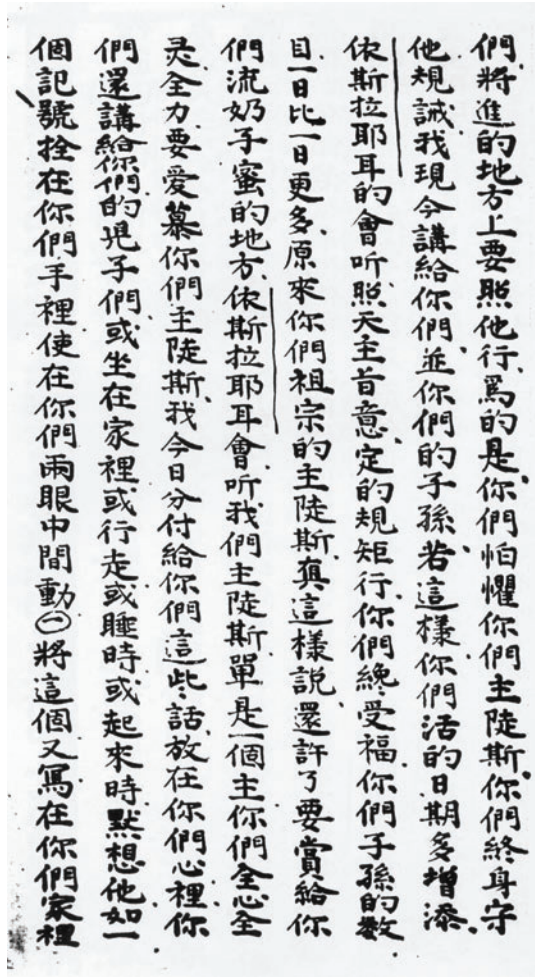 們、將進的地方上要照他行、爲的是、你們怕懼你們主陡斯、你們終身守
他規誡、我現今講給你們、並你們的子孫、若這樣、你們活的日期多增添、
依斯拉耶耳的會、听照天主旨意、定的規矩行、你們纔受福、你們子孫的數
目、一日比一日更多、原來你們祖宗的主陡斯、眞這樣說、還許了要賞給你
們流奶子蜜的地方、依斯拉耶耳會、听我們主陡斯單是一個主、你們全心全
灵全力、要愛慕你們主陡斯、我今日分付給你們這些話、放在你們心裡、你
們還講給你們的兒子們、或坐在家裡、或行走、或睡時、或起來時、默想他、如一
個記號、拴在你們手裡、使在你們兩眼中間動㊀將這個又寫在你們家裡